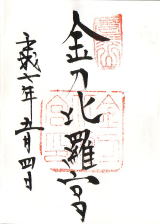 金刀比羅宮
平成七年五月四日